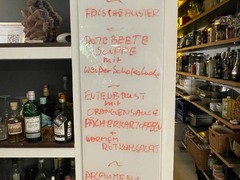 FRISCHE AUSTER
ROTE BEETE
SUPPE
mit
Weißer Schokolade
ENTENBRUST
mit
ORANGENSAUCE
FÄCHERKARTOFFEL
+
WARMEM
ROTKOHLSALAT